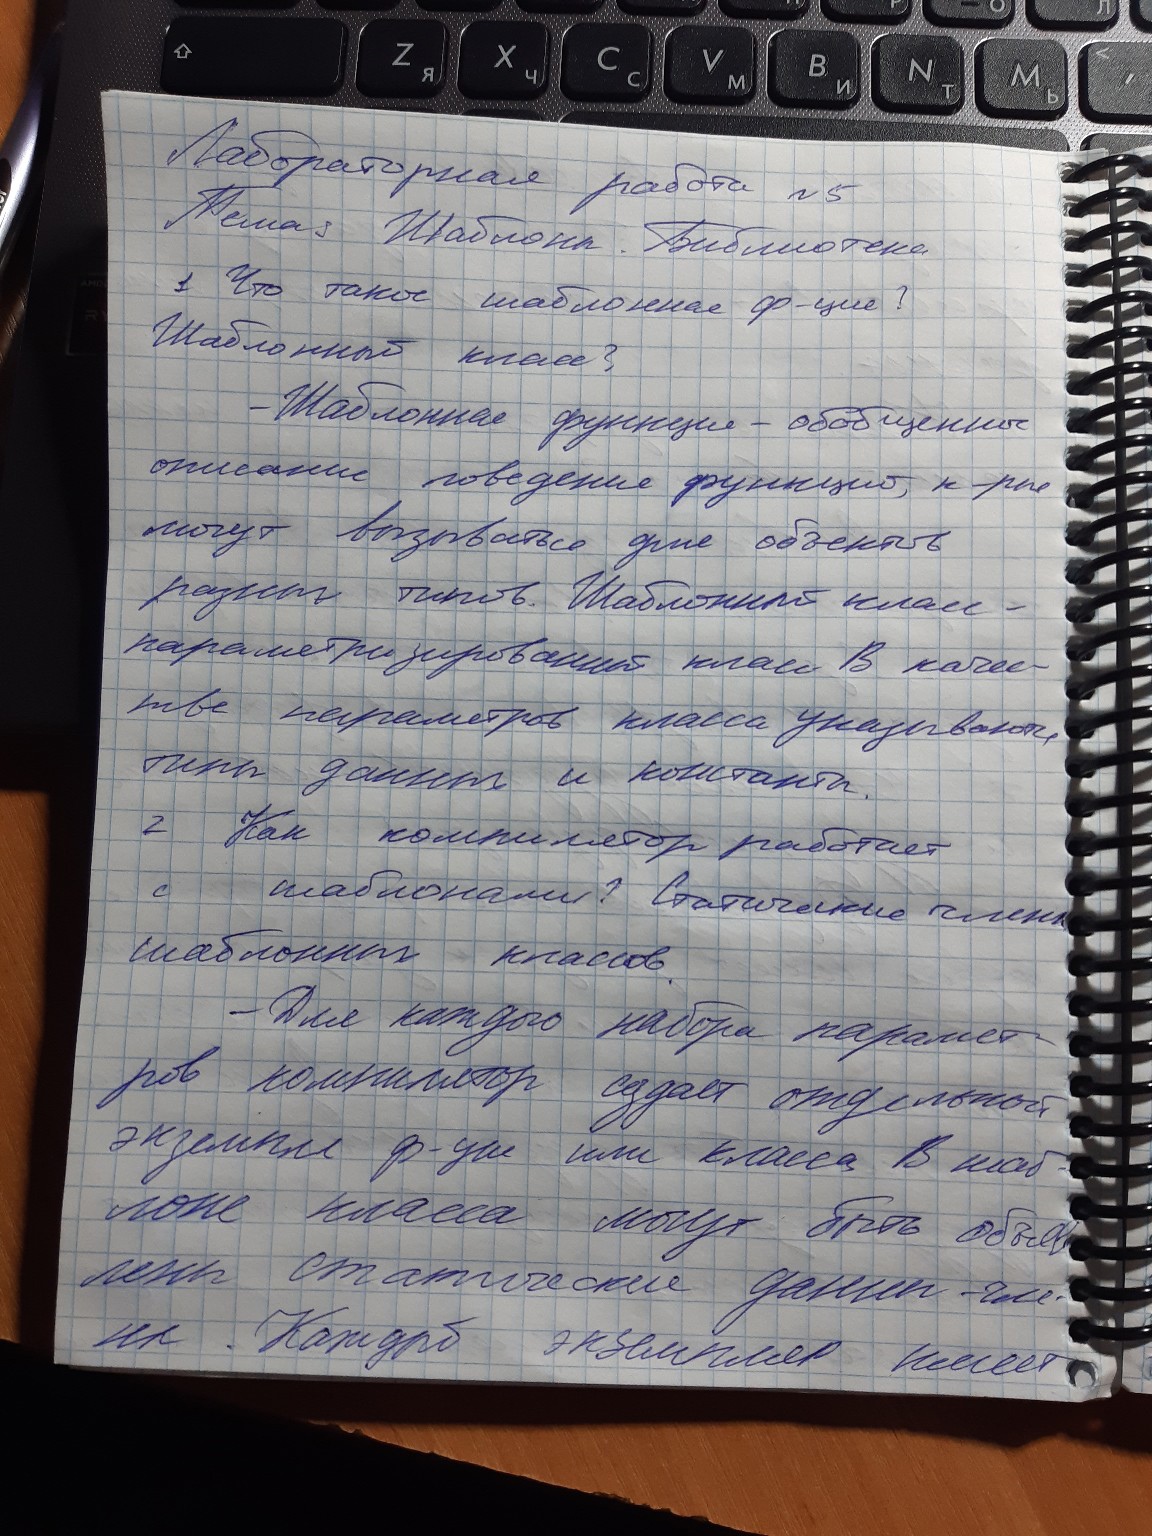 Z Я X Ч C С V М B И N Т M Ь
Лабораторная работа №5
Тема: Шаблоны. Библиотека
1 Что такое шаблонная ф-ция?
Шаблонный класс?
- Шаблонная функция - обобщенное
описание поведения функций, к-рые
могут вызываться для объектов
разных типов. Шаблонный класс -
параметризированный класс. В качес-
тве параметров класса указываются
типы данных и константы.
2 Как компилятор работает
с шаблонами? Статические члены
шаблонных классов.
- Для каждого набора парамет-
ров компилятор создает отдельный
экземпляр ф-ции или класса. В шаб-
лоне класса могут быть объяв
лены статические данные-чле-
ны. Каждый экземпляр имеет